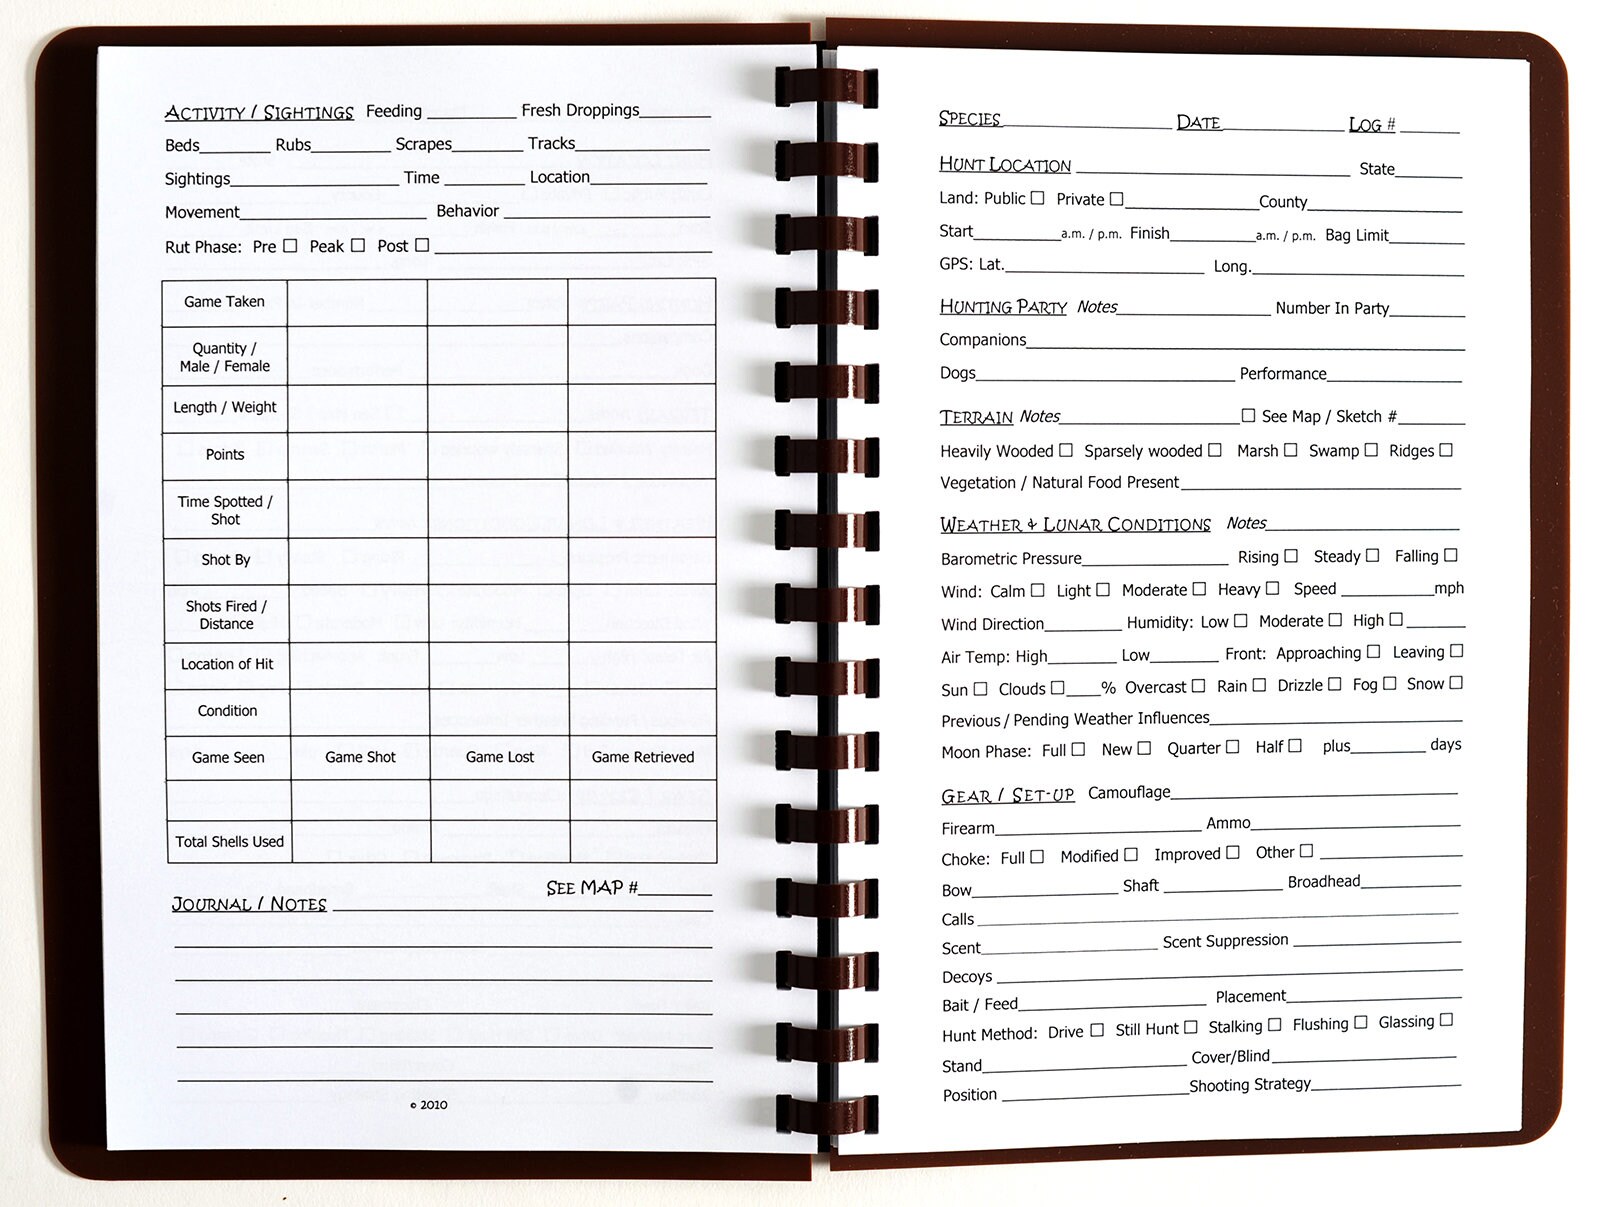 ACTIVITY / SIGHTINGS Feeding __________ Fresh Droppings________
Beds________ Rubs_________ Scrapes________ Tracks_______________
Sightings___________________ Time _________ Location_____________
Movement_____________________ Behavior _______________________
Rut Phase: Pre ☐ Peak ☐ Post ☐ _______________________________
Game Taken
Quantity /
Male / Female
Length / Weight
Points
Time Spotted /
Shot
Shot By
Shots Fired /
Distance
Location of Hit
Condition
Game Seen Game Shot Game Lost Game Retrieved
Total Shells Used
SEE MAP #________
JOURNAL / NOTES
© 2010
SPECIES___________________ DATE______________ LOG # _______
HUNT LOCATION _______________________________ State________
Land: Public ☐ Private ☐_______________County__________________
Start__________a.m. / p.m. Finish__________a.m. / p.m. Bag Limit________
GPS: Lat.______________________ Long.________________________
HUNTING PARTY Notes_________________ Number In Party________
Companions__________________________________________________
Dogs_____________________________ Performance_______________
TERRAIN Notes____________________☐ See Map / Sketch #_______
Heavily Wooded ☐ Sparsely wooded ☐ Marsh ☐ Swamp ☐ Ridges ☐
Vegetation / Natural Food Present________________________________
WEATHER & LUNAR CONDITIONS Notes______________________
Barometric Pressure________________ Rising ☐ Steady ☐ Falling ☐
Wind: Calm ☐ Light ☐ Moderate ☐ Heavy ☐ Speed __________mph
Wind Direction_________ Humidity: Low ☐ Moderate ☐ High ☐_______
Air Temp: High________ Low________ Front: Approaching ☐ Leaving ☐
Sun ☐ Clouds ☐____% Overcast ☐ Rain ☐ Drizzle ☐ Fog ☐ Snow ☐
Previous / Pending Weather Influences_____________________________
Moon Phase: Full ☐ New ☐ Quarter ☐ Half ☐ plus________ days
GEAR / SET-UP Camouflage________________________________
Firearm_______________________ Ammo________________________
Choke: Full ☐ Modified ☐ Improved ☐ Other ☐ ________________
Bow________________ Shaft _____________ Broadhead___________
Calls _____________________________________________________
Scent___________________ Scent Suppression __________________
Decoys ___________________________________________________
Bait / Feed_____________________ Placement___________________
Hunt Method: Drive ☐ Still Hunt ☐ Stalking ☐ Flushing ☐ Glassing ☐
Stand_______________________ Cover/Blind____________________
Position _____________________Shooting Strategy_________________